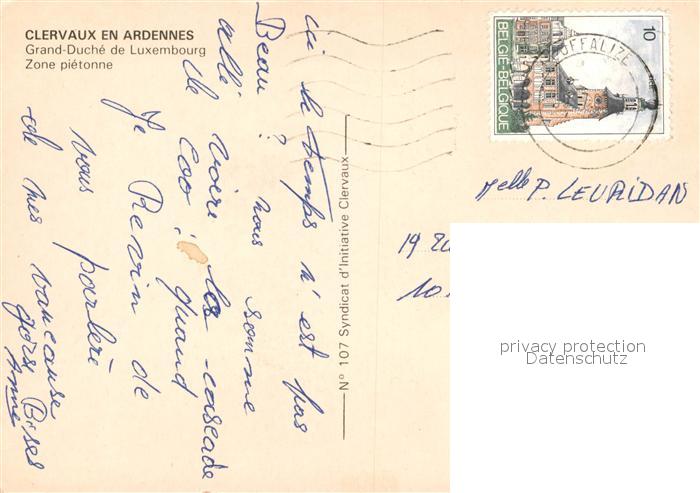 CLERVAUX EN ARDENNES
Grand-Duché de Luxembourg
Zone piétonne
ici le temps n'est pas
Beau ? nous somme
allé voire les cascade
de coo ! quand
Je Revin de
vous parlère
de mes vancause
gors Bises
Anne
N° 107 Syndicat d'Initiative Clervaux
10
BELGIË-BELGIQUE
HOUFFALIZE
Melle P. LEURIDAN
19
10.
privacy protection
Datenschutz